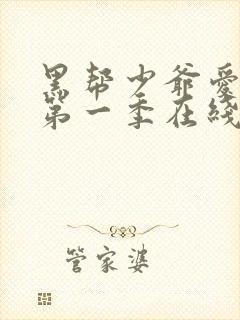 黑帮少爷爱
第一季在线
管家婆